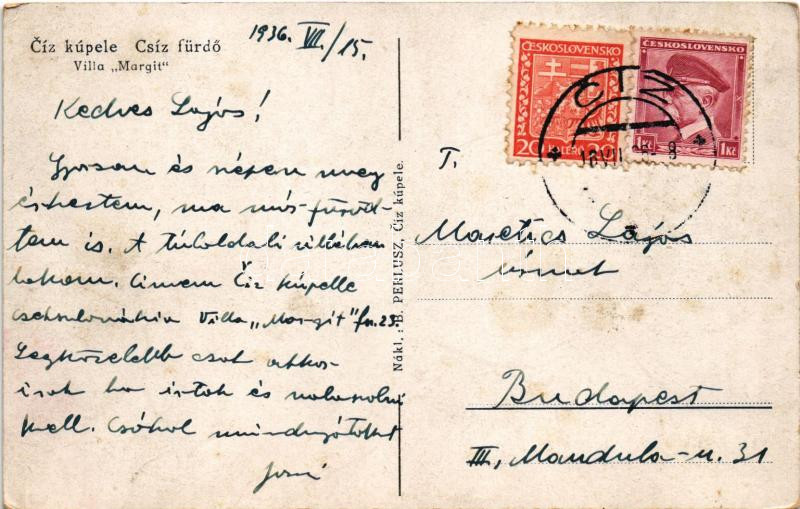 Číz kúpele Csíz fürdő
Villa „Margit"
1936. VII/15.
Kedves Lajos!
Gyorsan és szépen meg
érkeztem, ma már füröd-
tem is. A túloldali villában
lakom. Címem Číz kúpelle
csehszlovákia Villa „Margit" fn. 23.
Legközelebb csak akkor
irok ha irtok és válaszolni
kell. Csókol mindnyájatokat
Nákl.: B. PERLUSZ, Číz kúpele.
ČESKOSLOVENSKO
20 HALÉŘŮ 20
ČESKOSLOVENSKO
1Kč 1Kč
ČÍŽ
T.
Lajos
úrnak
Budapest
III, Mandula-u. 31